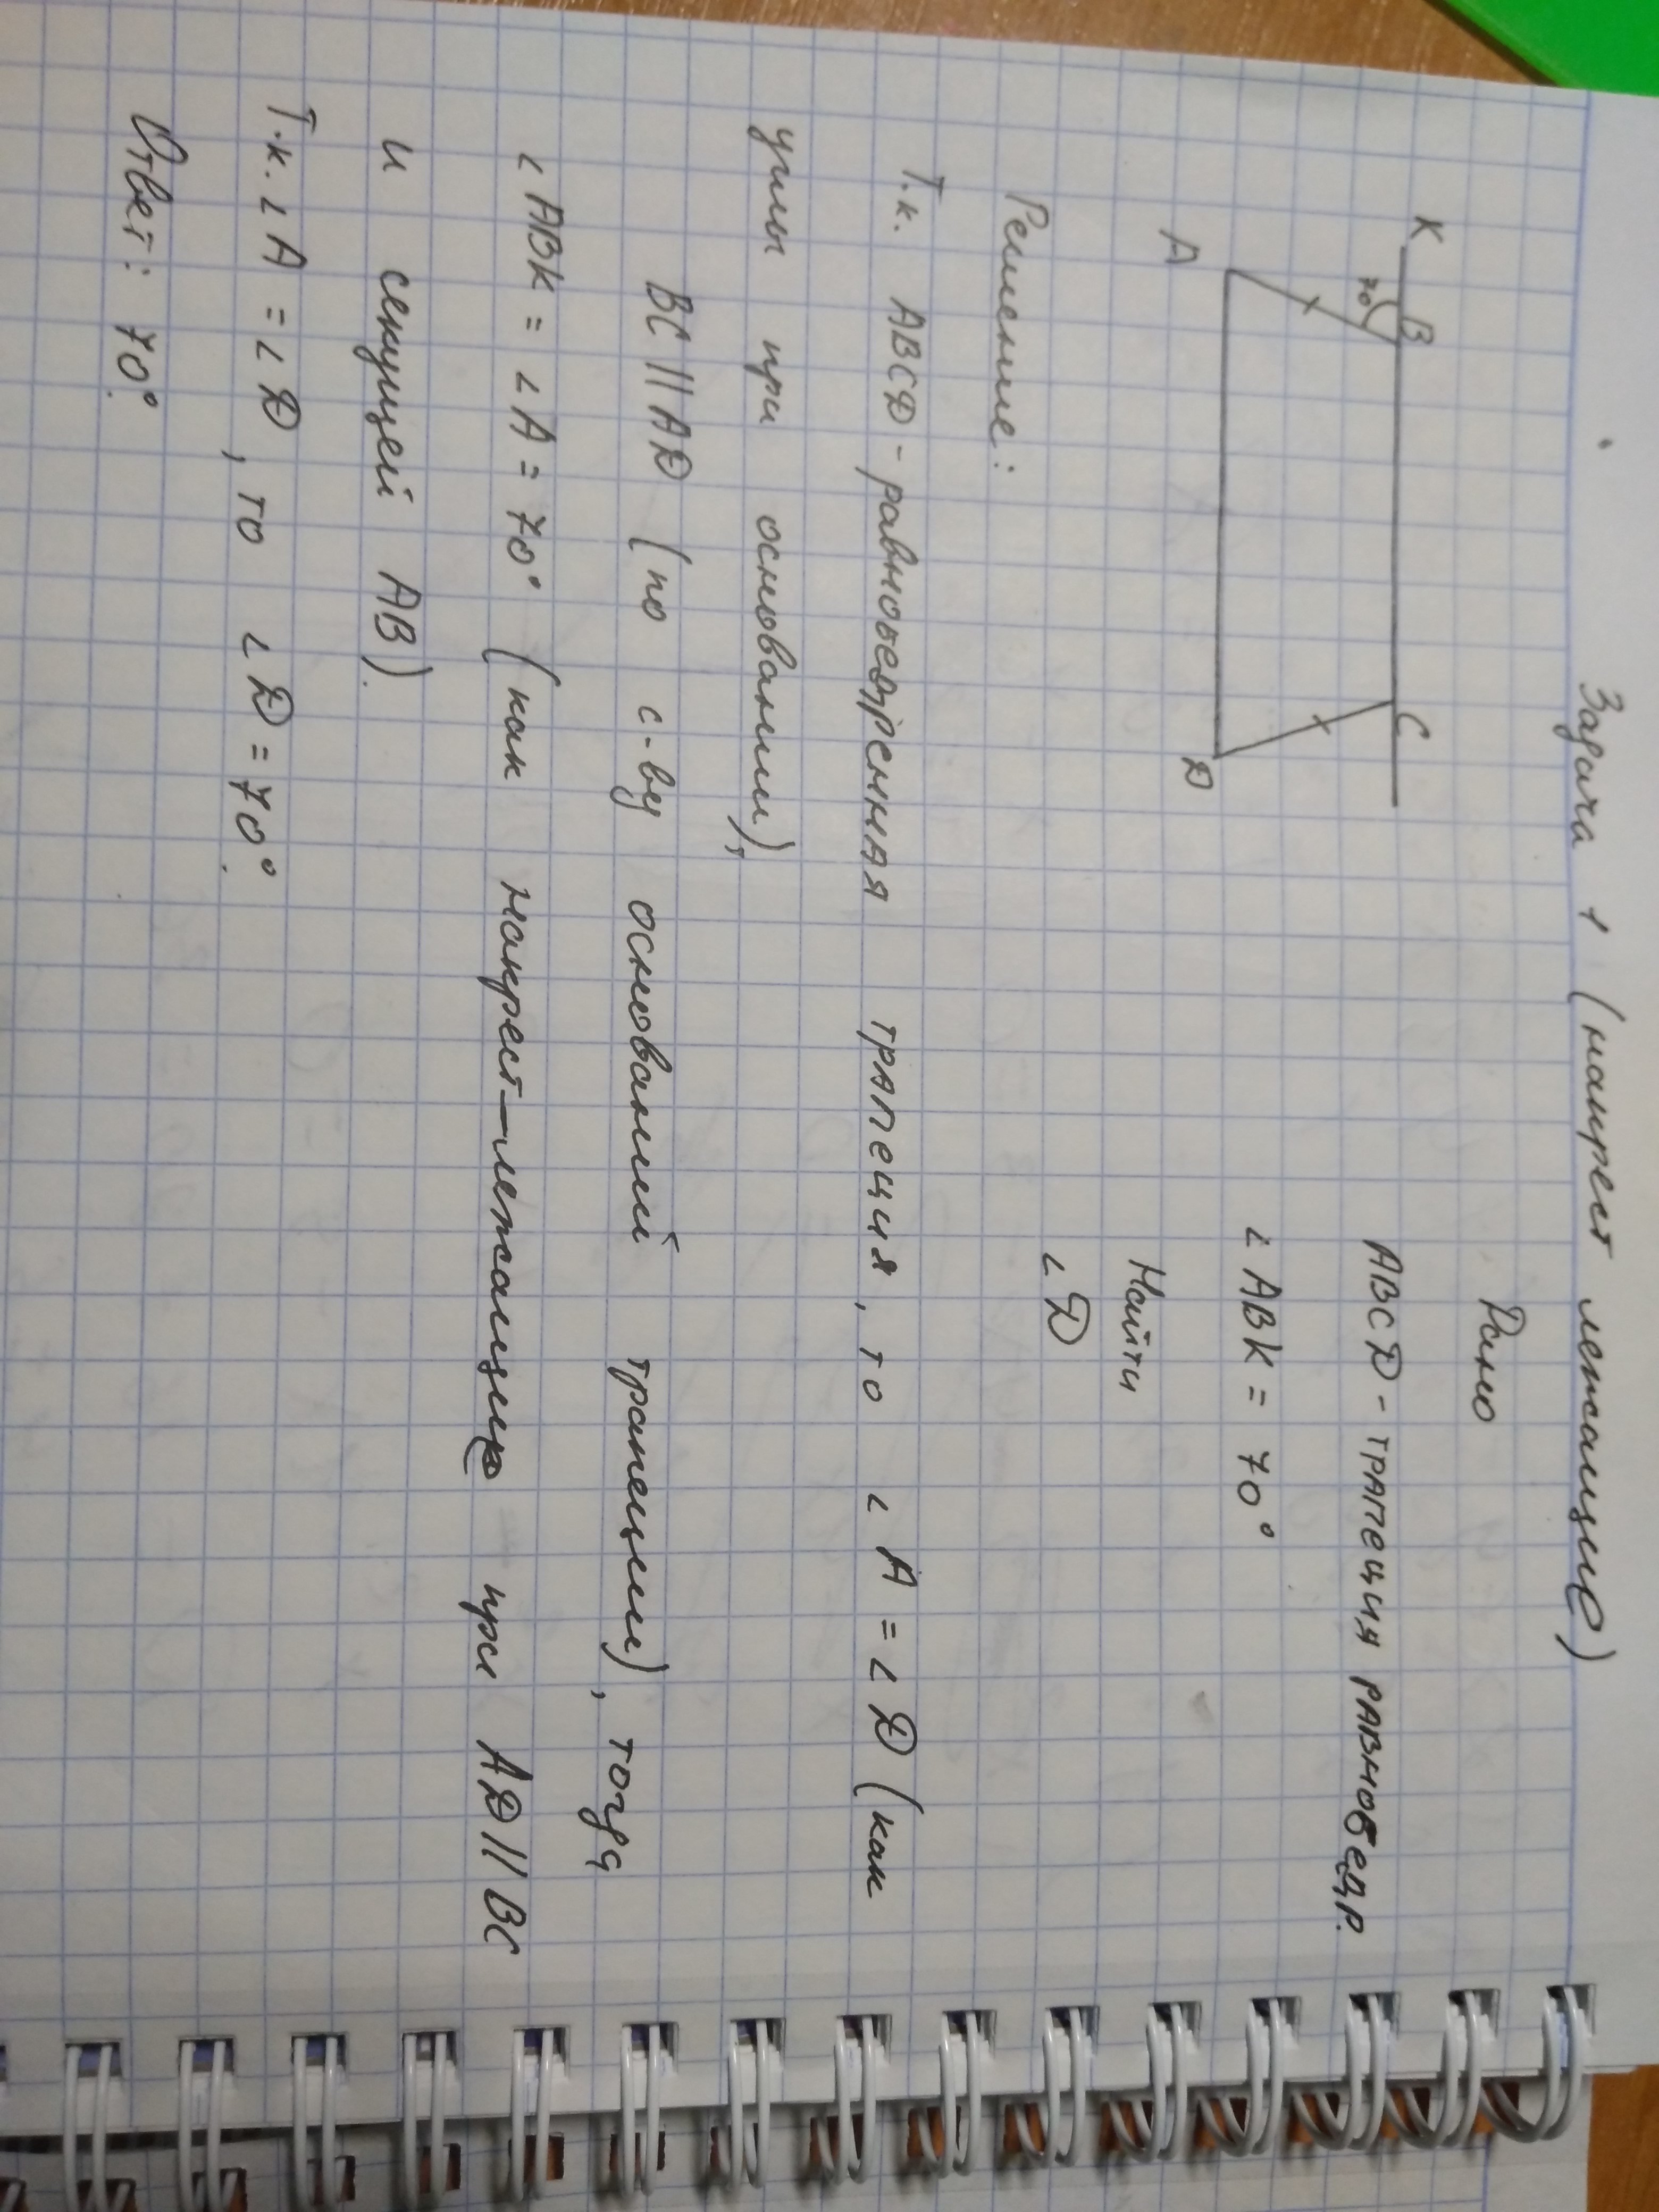 Задача 1 (накрест лежащие)
Дано
K B C
70°
A D
ABCD - трапеция равнобедр.
∠ ABK = 70°
Найти
∠ D
Решение:
Т.к. ABCD - равнобедренная трапеция, то ∠ A = ∠ D (как
углы при основании),
BC || AD (по с-ву оснований трапеции), тогда
∠ ABK = ∠ A = 70° (как накрест-лежащие при AD || BC
и секущей AB).
Т.к. ∠ A = ∠ D, то ∠ D = 70°.
Ответ: 70°.